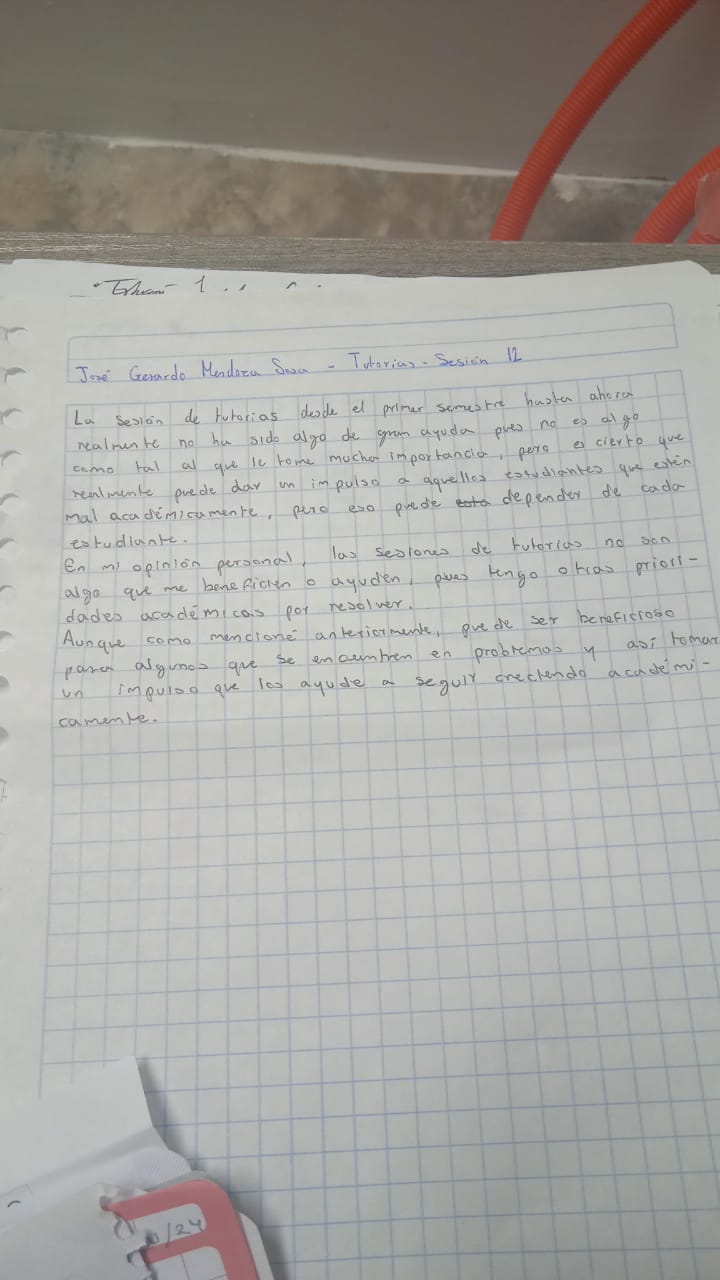 José Gerardo Mendoza Sosa - Tutorias - Sesión 12
La sesión de tutorias desde el primer semestre hasta ahora
realmente no ha sido algo de gran ayuda pues no es algo
como tal al que le tome mucha importancia, pero es cierto que
realmente puede dar un impulso a aquellos estudiantes que estén
mal académicamente, pero eso puede depender de cada
estudiante.
En mi opinión personal, las sesiones de tutorias no son
algo que me beneficien o ayuden, pues tengo otras priori-
dades académicas por resolver.
Aunque como mencioné anteriormente, puede ser beneficioso
para algunos que se encuentren en problemas y así tomar
un impulso que los ayude a seguir creciendo académi-
camente.
/24